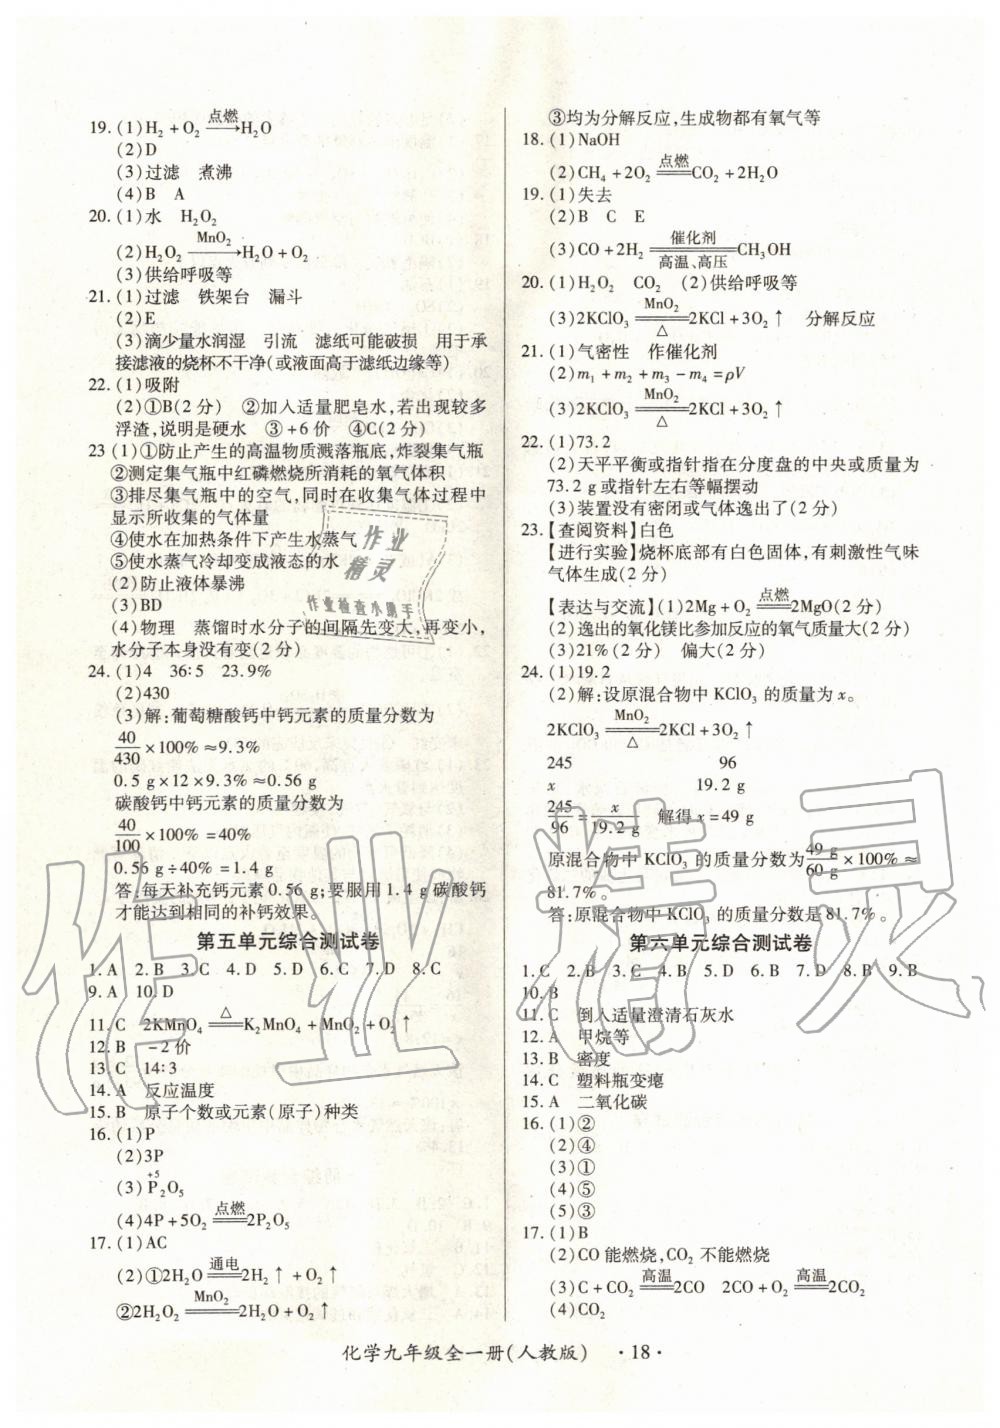 19. (1)H₂+O₂ —点燃→ H₂O
(2)D
(3)过滤　煮沸
(4)B　A
20. (1)水　H₂O₂
(2)H₂O₂ —MnO₂→ H₂O+O₂
(3)供给呼吸等
21. (1)过滤　铁架台　漏斗
(2)E
(3)滴少量水润湿　引流　滤纸可能破损　用于承
接滤液的烧杯不干净(或液面高于滤纸边缘等)
22. (1)吸附
(2)①B(2分)　②加入适量肥皂水,若出现较多
浮渣,说明是硬水　③+6价　④C(2分)
23 (1)①防止产生的高温物质溅落瓶底,炸裂集气瓶
②测定集气瓶中红磷燃烧所消耗的氧气体积
③排尽集气瓶中的空气,同时在收集气体过程中
显示所收集的气体量
④使水在加热条件下产生水蒸气
⑤使水蒸气冷却变成液态的水
(2)防止液体暴沸
(3)BD
(4)物理　蒸馏时水分子的间隔先变大,再变小,
水分子本身没有变(2分)
24. (1)4　36∶5　23.9%
(2)430
(3)解:葡萄糖酸钙中钙元素的质量分数为
40/430×100%≈9.3%
0.5 g×12×9.3%≈0.56 g
碳酸钙中钙元素的质量分数为
40/100×100%=40%
0.56 g÷40%=1.4 g
答:每天补充钙元素0.56 g;要服用1.4 g碳酸钙
才能达到相同的补钙效果。
第五单元综合测试卷
1. A　2. B　3. C　4. D　5. D　6. C　7. D　8. C
9. A　10. D
11. C　2KMnO₄ =△= K₂MnO₄+MnO₂+O₂↑
12. B　-2价
13. C　14∶3
14. A　反应温度
15. B　原子个数或元素(原子)种类
16. (1)P
(2)3P
(3)P⁺⁵₂O₅
(4)4P+5O₂ =点燃= 2P₂O₅
17. (1)AC
(2)①2H₂O =通电= 2H₂↑+O₂↑
②2H₂O₂ =MnO₂= 2H₂O+O₂↑
③均为分解反应,生成物都有氧气等
18. (1)NaOH
(2)CH₄+2O₂ =点燃= CO₂+2H₂O
19. (1)失去
(2)B　C　E
(3)CO+2H₂ =催化剂 高温、高压= CH₃OH
20. (1)H₂O₂　CO₂　(2)供给呼吸等
(3)2KClO₃ =MnO₂ △= 2KCl+3O₂↑　分解反应
21. (1)气密性　作催化剂
(2)m₁+m₂+m₃-m₄=ρV
(3)2KClO₃ =MnO₂ △= 2KCl+3O₂↑
22. (1)73.2
(2)天平平衡或指针指在分度盘的中央或质量为
73.2 g或指针左右等幅摆动
(3)装置没有密闭或气体逸出了(2分)
23. 【查阅资料】白色
【进行实验】烧杯底部有白色固体,有刺激性气味
气体生成(2分)
【表达与交流】(1)2Mg+O₂ =点燃= 2MgO(2分)
(2)逸出的氧化镁比参加反应的氧气质量大(2分)
(3)21%(2分)　偏大(2分)
24. (1)19.2
(2)解:设原混合物中KClO₃的质量为x。
2KClO₃ =MnO₂ △= 2KCl+3O₂↑
245　96
x　19.2 g
245/96=x/19.2 g　解得x=49 g
原混合物中KClO₃的质量分数为49 g/60 g×100%≈
81.7%。
答:原混合物中KClO₃的质量分数是81.7%。
第六单元综合测试卷
1. C　2. B　3. C　4. B　5. D　6. B　7. D　8. B　9. B
10. B
11. C　倒入适量澄清石灰水
12. A　甲烷等
13. B　密度
14. C　塑料瓶变瘪
15. A　二氧化碳
16. (1)②
(2)④
(3)①
(4)⑤
(5)③
17. (1)B
(2)CO能燃烧,CO₂不能燃烧
(3)C+CO₂ =高温= 2CO　2CO+O₂ =高温= 2CO₂
(4)CO₂
化学九年级全一册(人教版)　·18·
作业精灵
作业
精灵
作业检查小助手